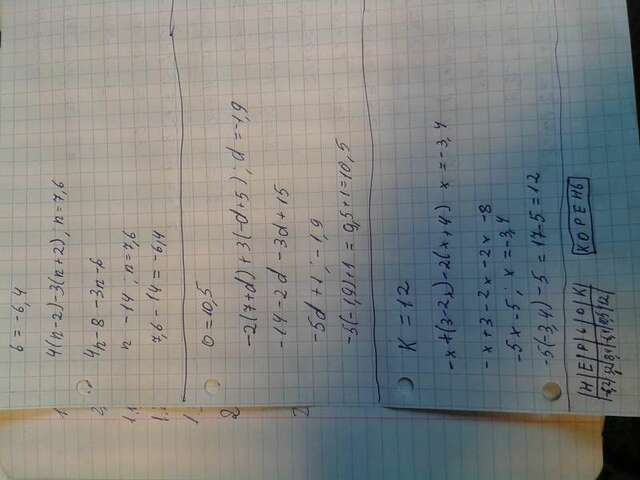 6 = -6,4
4(n-2)-3(n+2); n=7,6
4n-8-3n-6
n-14; n=7,6
7,6-14=-6,4
0=10,5
-2(7+d)+3(-d+5); d=-1,9
-14-2d-3d+15
-5d+1; -1,9
-5(-1,9)+1=9,5+1=10,5
K=12
-x+(3-2x)-2(x+4) x=-3,4
-x+3-2x-2x-8
-5x-5; x=-3,4
-5(-3,4)-5=17-5=12
Н Е Р Ь О К
КОРЕНЬ